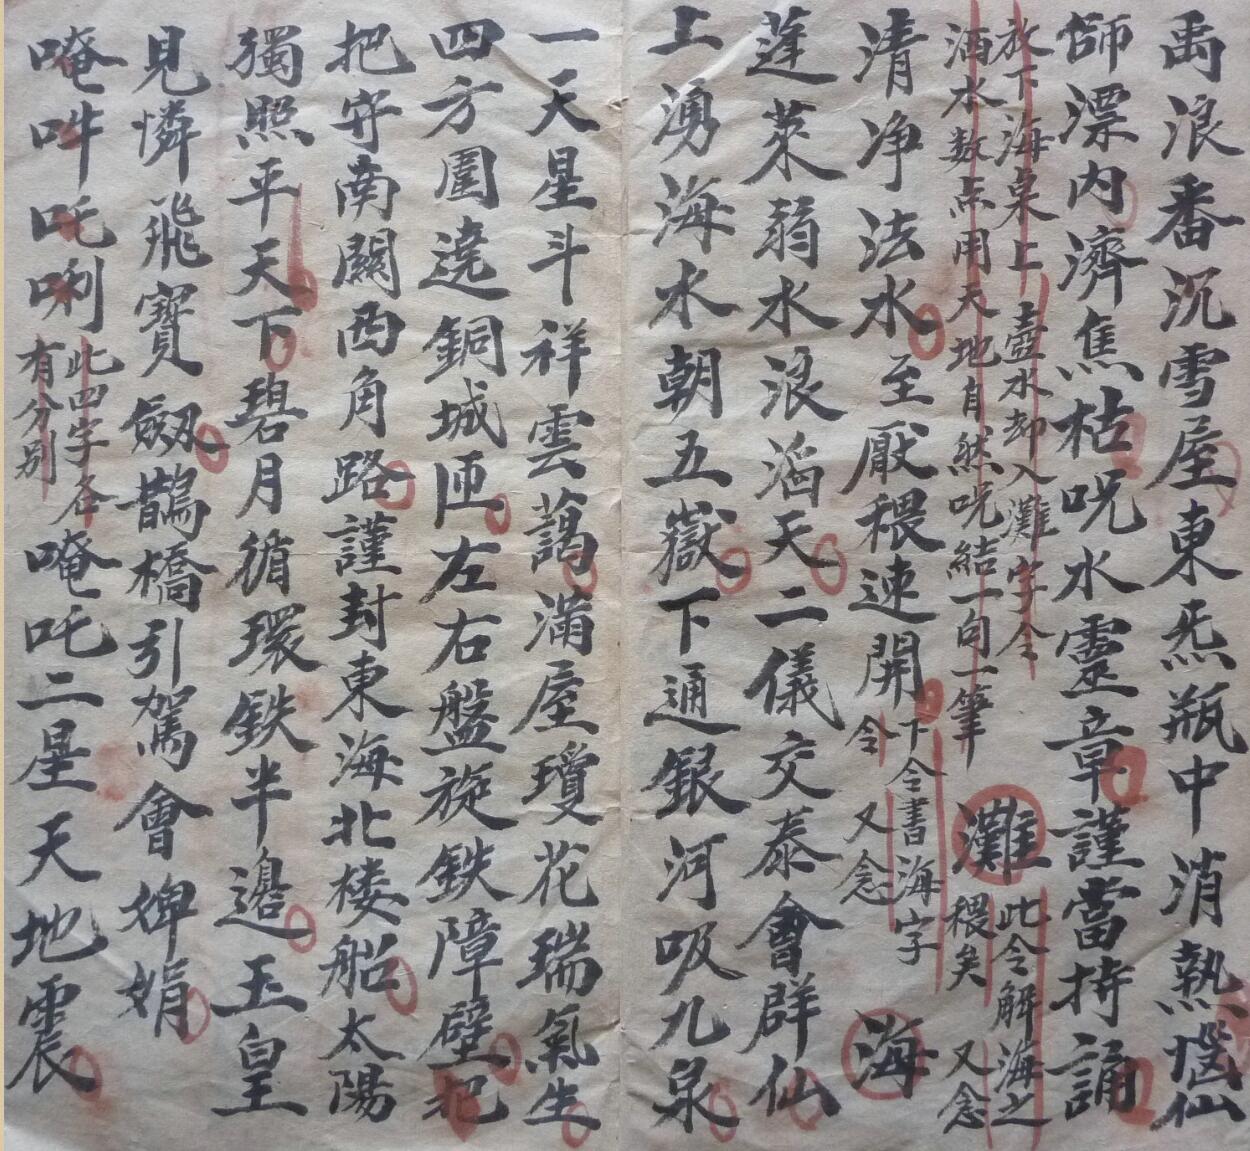 禹浪番沉雪屋東炁瓶中消熱惱仙
師漂內濟焦枯咒水靈章謹當持誦
放下海桌上 壺水却入灘字令
洒水数点用天地自然咒結一句一筆
灘
此令解海之
穢矣 又念
清净法水至厭穢速開
下令書海字
令 又念
海
蓬萊弱水浪滔天二儀交泰會群仙
上湧海水朝五嶽下通銀河吸九泉
一天星斗祥雲藹滿屋瓊花瑞氣生
四方圍遶銅城匝左右盤旋鉄障壁把
把守南關西角路謹封東海北楼船太陽
獨照平天下碧月循環鉄半邉玉皇
見憐飛寶劔鵲橋引駕會婢娟
唵吽吒唎
此四字各
有分别
唵吒二星天地震